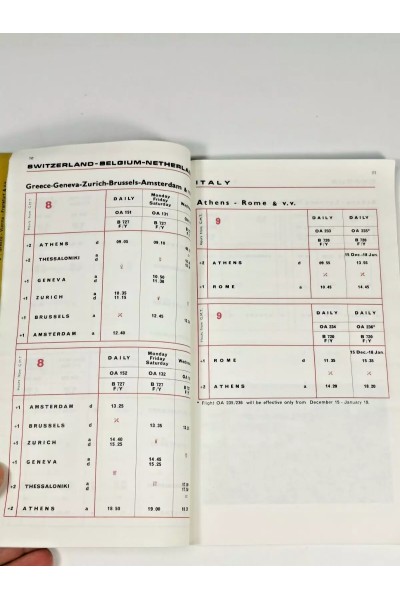 SWITZERLAND-BELGIUM-NETHERLA
Greece-Geneva-Zurich-Brussels-Amsterdam &
8
DAILY Monday Friday Saturday
OA 151 OA 131
B 727 F/Y B 727 F/Y
+2 ATHENS d 09.05 09.10
+2 THESSALONIKI a d
+1 GENEVA a d 10.50 11.30
+1 ZURICH a d 10.35 11.15
+1 BRUSSELS a 12.45
+1 AMSTERDAM a 12.40
8
DAILY Monday Friday Saturday
OA 152 OA 132
B 727 F/Y B 727 F/Y
+1 AMSTERDAM d 13.25
+1 BRUSSELS d 13.35
+1 ZURICH a d 14.40 15.25
+1 GENEVA a d 15.25
+2 THESSALONIKI a d
+2 ATHENS a 18.50 19.00
ITALY
Athens - Rome & v.v.
9
DAILY DAILY
OA 233 OA 235*
B 720 F/Y B 720 F/Y
15 Dec.-18 Jan.
+2 ATHENS d 09.55 13.55
+1 ROME a 10.45 14.45
9
DAILY DAILY
OA 234 OA 236*
B 720 F/Y B 720 F/Y
15 Dec.-18 Jan.
+1 ROME d 11.35 15.35
+2 ATHENS a 14.20 18.20
* Flight OA 235/236 will be effective only from December 15 - January 18.